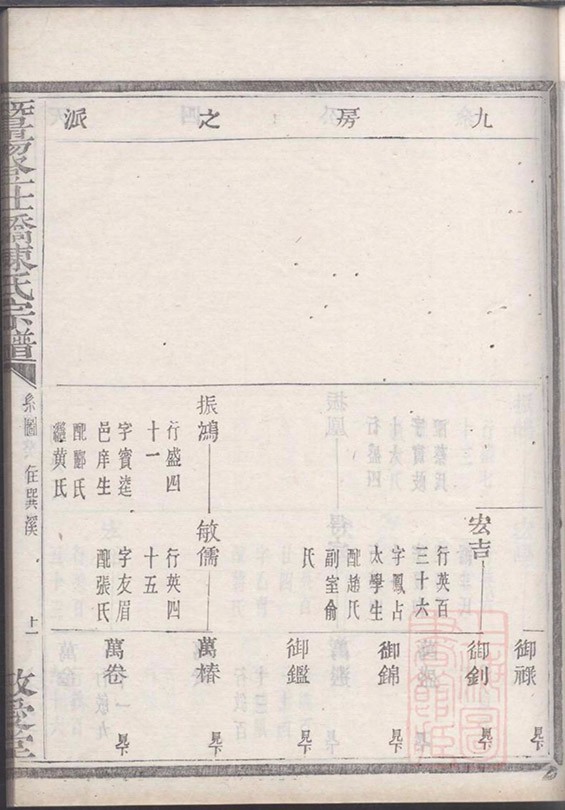 九房之派
御祿 見下
宏吉
行英百
三十六
字鳳占
太學生
配趙氏
副室俞
氏
御釗 見下
御錦 見下
御鑑 見下
振鴻
行盛四
十一
字賓逵
邑庠生
配酈氏
繼黃氏
敏儒
行英四
十五
字友眉
配張氏
萬椿 見下
萬卷 見下
橋陳氏宗譜
系圖
在巽溪
十一